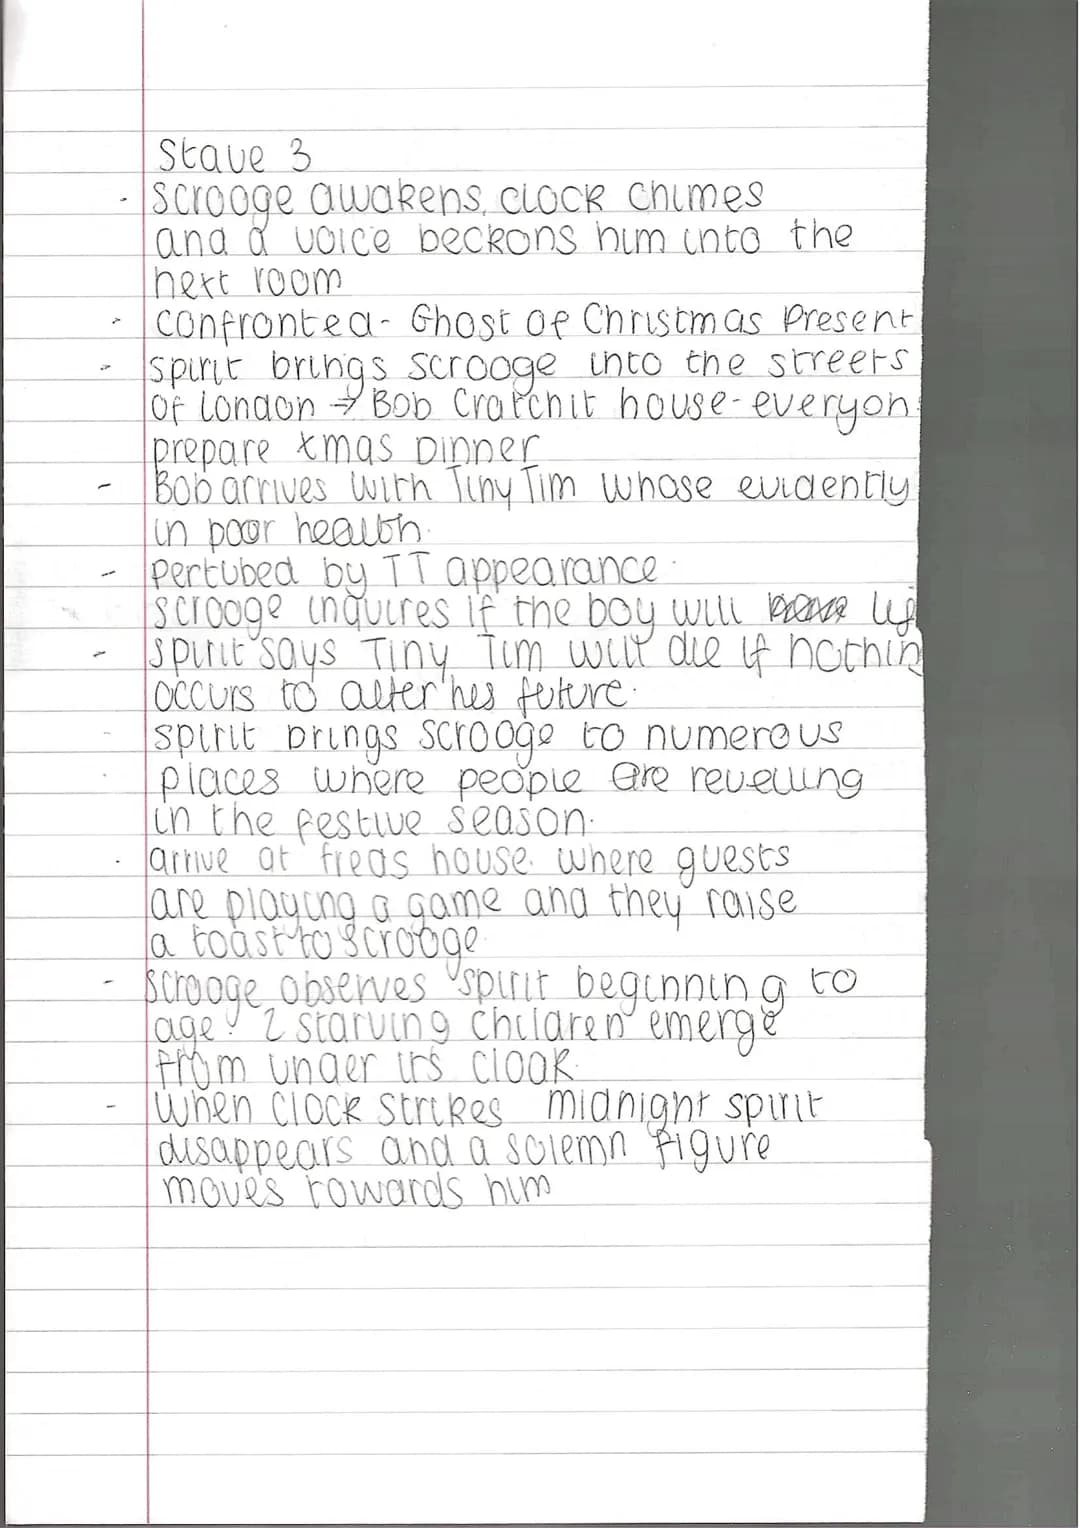 Stave 3
- Scrooge awakens, clock chimes
and a voice beckons him into the
next room
- confronted - Ghost of Christmas Present
- spirit brings scrooge into the streets
of London → Bob Cratchit house - everyon
prepare xmas Dinner
- Bob arrives with Tiny Tim whose evidently
in poor health.
- pertubed by TT appearance.
scrooge inquires if the boy will
- spirit says Tiny Tim will die if nothin
occurs to alter hes future.
- spirit brings scrooge to numerous
places where people are revelling
in the festive season.
- arrive at freds house. where guests
are playing a game and they raise
a toast to scrooge.
- Scrooge observes spirit beginning to
age. 2 starving children emerge
from under it's cloak.
- When clock strikes midnight spirit
disappears and a solemn figure
moves towards him